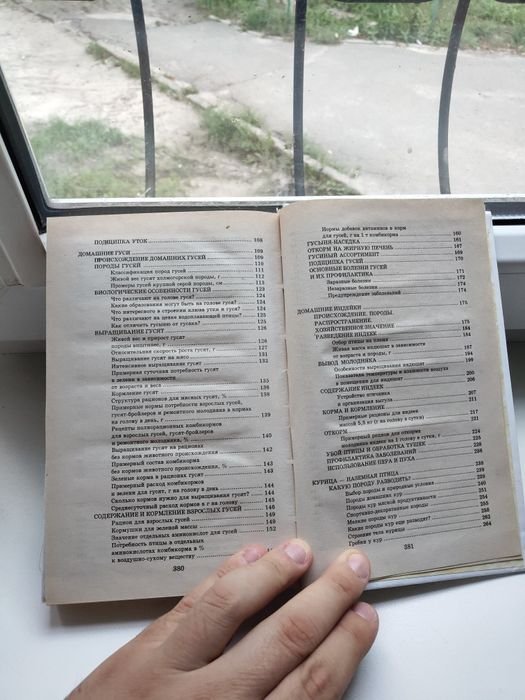 ПОДЩИПКА УТОК 108
ДОМАШНИЕ ГУСИ 109
ПРОИСХОЖДЕНИЕ ДОМАШНИХ ГУСЕЙ 109
ПОРОДЫ ГУСЕЙ 110
Классификация пород гусей 111
Живой вес гусят холмогорской породы, г 112
Промеры гусей крупной серой породы, см 123
БИОЛОГИЧЕСКИЕ ОСОБЕННОСТИ ГУСЕЙ 124
Что различают на голове гуся? 124
Какие образования могут быть на голове гуся? 124
Что интересного в строении клюва утки и гуся? 124
Что различают на щеках водоплавающей птицы? 125
Как отличить гусыню от гусака? 125
ВЫРАЩИВАНИЕ ГУСЯТ 126
Живой вес и прирост гусят
породы виштинес, г
Относительная скорость роста гусят, % 127
Выращивание гусят на мясо 131
Интенсивное выращивание гусят 132
Примерная суточная потребность гусят
в зелени в зависимости
от возраста и веса 135
Кормление гусят 136
Структура рационов для мясных гусят, % 138
Примерные нормы потребности взрослых гусей,
гусят-бройлеров и ремонтного молодняка в кормах
на голову в день, г 139
Рецепты полнорационных комбикормов
для взрослых гусей, гусят-бройлеров
и ремонтного молодняка, % 140
Выращивание гусят на рационах
без кормов животного происхождения 142
Примерный состав комбикорма
без кормов животного происхождения, % 143
Зеленые корма в рационах гусят
Примерный расход комбикормов
и зелени для гусят, г на голову в день 144
Сколько кормов нужно для выращивания гусят? 144
Среднесуточный расход кормов в г на голову 145
СОДЕРЖАНИЕ И КОРМЛЕНИЕ ВЗРОСЛЫХ ГУСЕЙ 146
Рацион для взрослых гусей 149
Кормушки для зеленой массы 149
Значение отдельных аминокислот для гусей 152
Потребность птицы в отдельных
аминокислотах комбикорма в %
к воздушно-сухому веществу
380
Нормы добавок витаминов в корм
для гусей, г на 1 т комбикорма 160
ГУСЫНЯ-НАСЕДКА 161
ОТКОРМ НА ЖИРНУЮ ПЕЧЕНЬ 167
ГУСИНЫЙ АССОРТИМЕНТ
ПОДЩИПКА ГУСЕЙ
ОСНОВНЫЕ БОЛЕЗНИ ГУСЕЙ
И ИХ ПРОФИЛАКТИКА 171
Заразные болезни 172
Незаразные болезни 174
Предупреждение заболеваний 174
ДОМАШНИЕ ИНДЕЙКИ 175
ПРОИСХОЖДЕНИЕ, ПОРОДЫ,
РАСПРОСТРАНЕНИЕ,
ХОЗЯЙСТВЕННОЕ ЗНАЧЕНИЕ 175
РАЗВЕДЕНИЕ ИНДЕЕК 184
Отбор птицы на племя
Живая масса индюшат в зависимости
от возраста и породы, г
ВЫВОД МОЛОДНЯКА
Особенности выращивания индюшат
Показатели температуры и влажности воздуха
в помещении для индюшат
СОДЕРЖАНИЕ ИНДЕЕК
Устройство птичника
и организация выгула
КОРМА И КОРМЛЕНИЕ
Примерные рационы для индеек
массой 5,5 кг (г на голову в сутки)
ОТКОРМ
Примерный рацион для откорма
молодняка индеек на 1 голову в сутки, г
УБОЙ ПТИЦЫ И ОБРАБОТКА ТУШЕК
ПРОФИЛАКТИКА ЗАБОЛЕВАНИЙ
ИСПОЛЬЗОВАНИЕ ПЕРА И ПУХА
КУРИЦА — НАЗЕМНАЯ ПТИЦА
КАКУЮ ПОРОДУ РАЗВОДИТЬ?
Выбор породы и природные условия
Породы и домашних кур
Породы кур мясной продуктивности
Спортивно-декоративные породы
Мелкие породы кур
Какие породы кур еще разводят?
Строение тела курицы
Гребни у кур
381